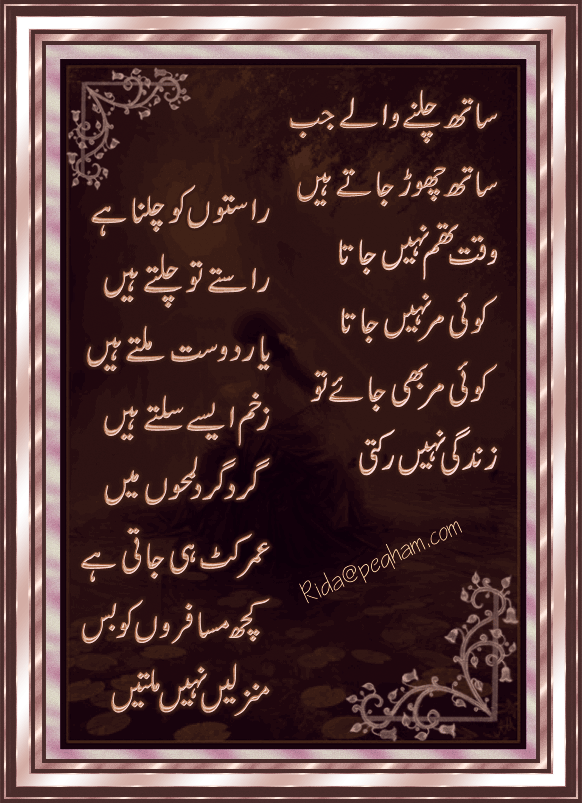 ساتھ چلنے والے جب
ساتھ چھوڑ جاتے ہیں
وقت تھم نہیں جاتا
کوئی مر نہیں جاتا
کوئی مر بھی جائے تو
زندگی نہیں رکتی
راستوں کو چلنا ہے
راستے تو چلتے ہیں
یار دوست ملتے ہیں
زخم ایسے سلتے ہیں
گرد گرد لمحوں میں
عمر کٹ ہی جاتی ہے
کچھ مسافروں کو بس
منزلیں نہیں ملتیں
Rida@pegham.com